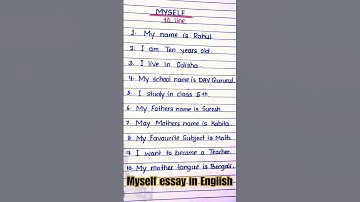 MYSELF
10 line
1. My name is Rahul.
2. I am Ten years old.
3. I live in Odisha.
4. My school name is DAV Gurukul.
5. I study in class 5th.
6. My Fathers name is Suresh.
7. May Mothers name is Kabita.
8. My Favourite Subject is Math.
9. I want to become a Teacher.
10. My mother tongue is Bengali.
Myself essay in English